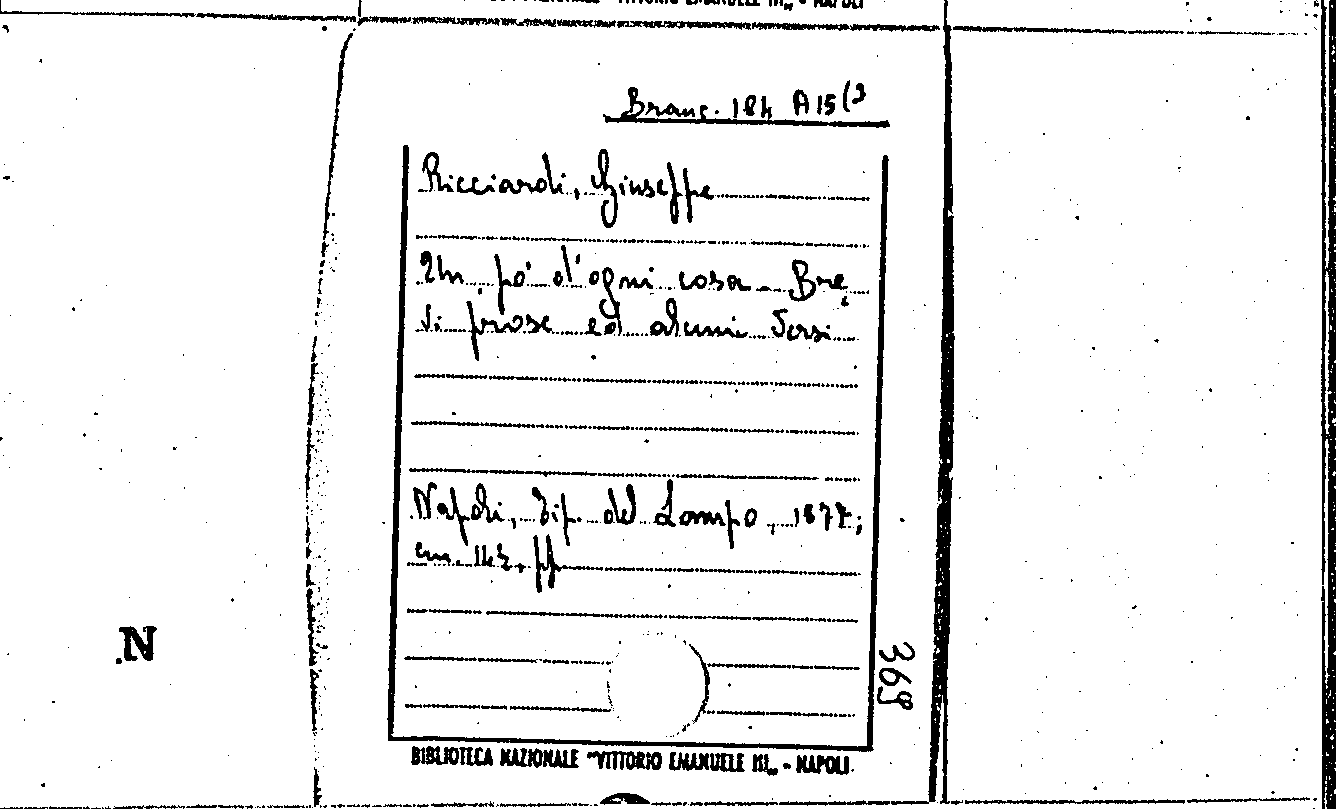 Branc. 184 A 15 (3
Ricciardi, Giuseppe
Un po' d'ogni cosa. Bre
vi prose ed alcuni versi
Napoli, Tip. del Lampo, 1877;
cm. pp
N
369
BIBLIOTECA NAZIONALE "VITTORIO EMANUELE III„ - NAPOLI